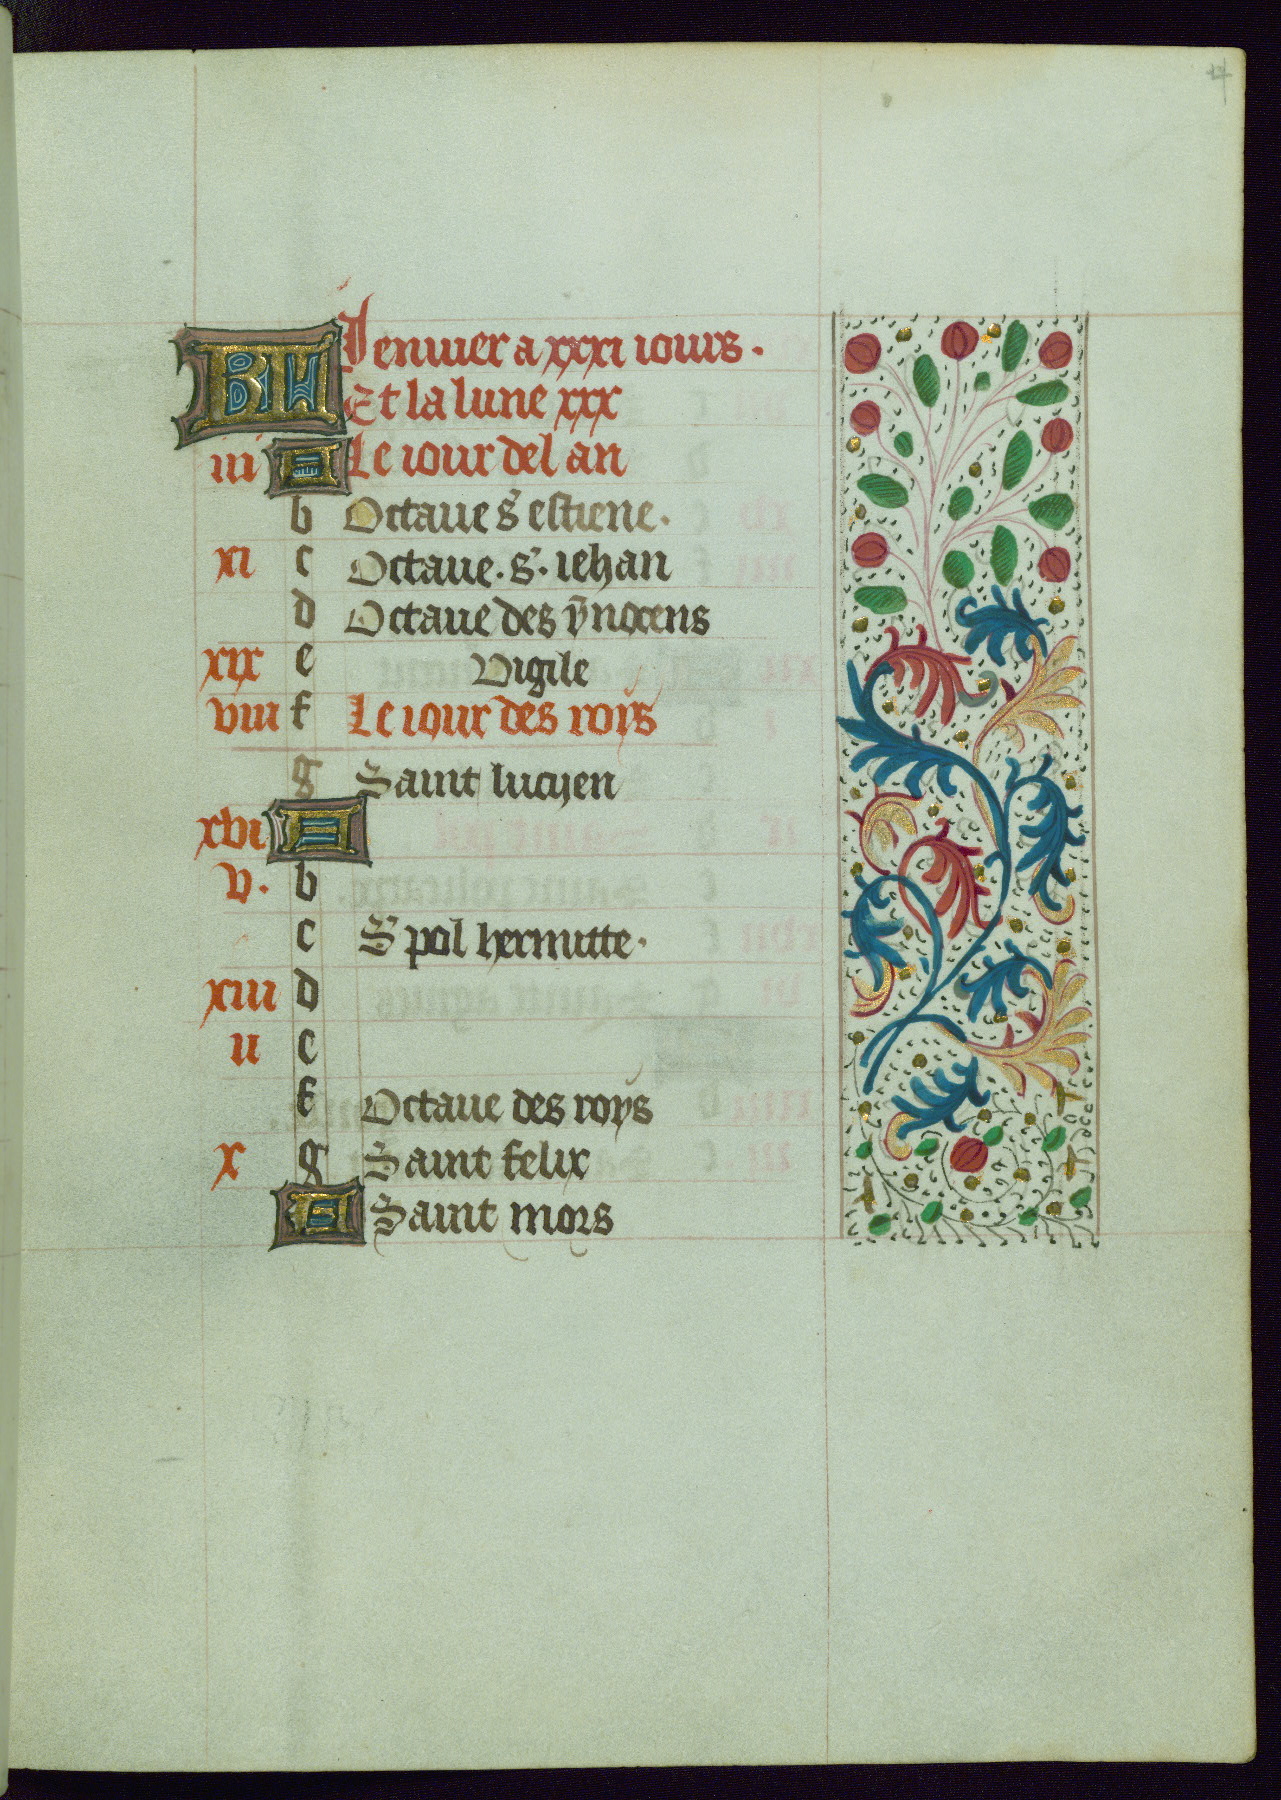 KL Jenuier a xxxi iours.
Et la lune xxx
iii A Le iour del an
b Octaue s' estiene.
xi c Octaue. s'. iehan
d Octaue des ynocens
xix e Vigile
viii f Le iour des roys
g Saint lucyen
xvi A
v. b
c S' pol hermitte.
xiii d
ii e
f Octaue des roys
x g Saint felix
A Saint mors